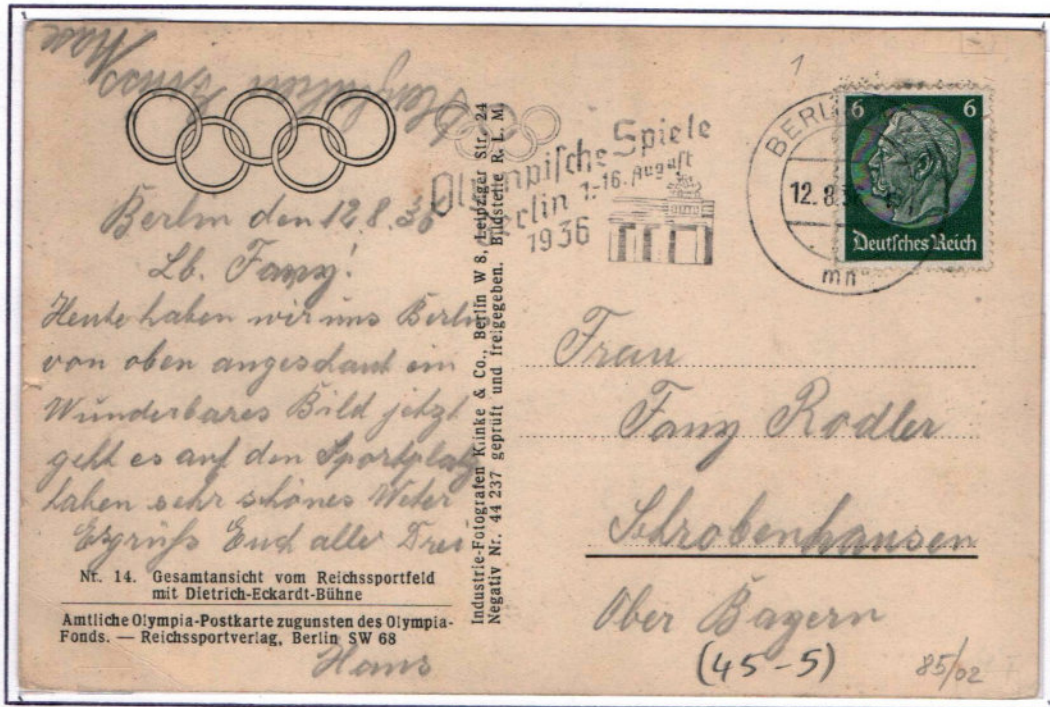 Berlin den 12.8.36
Lb. Fany!
Heute haben wir uns Berlin
von oben angeschaut ein
Wunderbares Bild jetzt
geht es auf den Sportplatz
haben sehr schönes Wetter
Euch alle Drei
Hans
Nr. 14. Gesamtansicht vom Reichssportfeld
mit Dietrich-Eckardt-Bühne
Amtliche Olympia-Postkarte zugunsten des Olympia-
Fonds. — Reichssportverlag, Berlin SW 68
Industrie-Fotografen Klinke & Co., Berlin W 8, Leipziger Str. 24
Negativ Nr. 44 237 geprüft und freigegeben. Bildstelle R. L. M.
Olympische Spiele
Berlin 1.-16. August
1936
1
BERLIN
12.8.3
mn
6 6
Deutsches Reich
Frau
Fany Rodler
Schrobenhausen
Ober Bayern
(45-5)
85/02